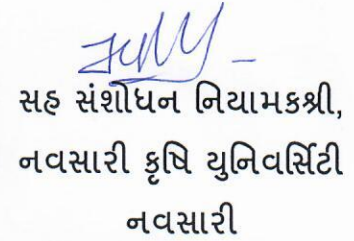 સહ સંશોધન નિયામકશ્રી,
નવસારી કૃષિ યુનિવર્સિટી
નવસારી